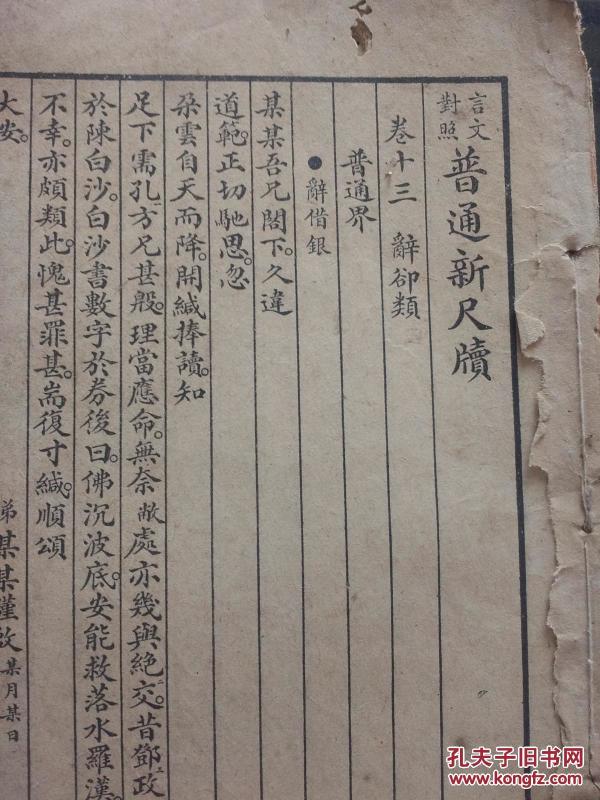 言文對照 普通新尺牘
卷十三 辭卻類
普通界
●辭借銀
某某吾兄閣下。久違
道範。正切馳思。忽
朶雲自天而降。開緘捧讀。知
足下需孔方兄甚殷。理當應命。無奈敝處亦幾與絶交。昔鄧政
於陳白沙。白沙書數字於券後曰。佛沉波底。安能救落水羅漢。
不幸。亦頗類此。愧甚罪甚。耑復寸緘。順頌
大安。 弟某某謹啟 某月某日
孔夫子旧书网
www.kongfz.com